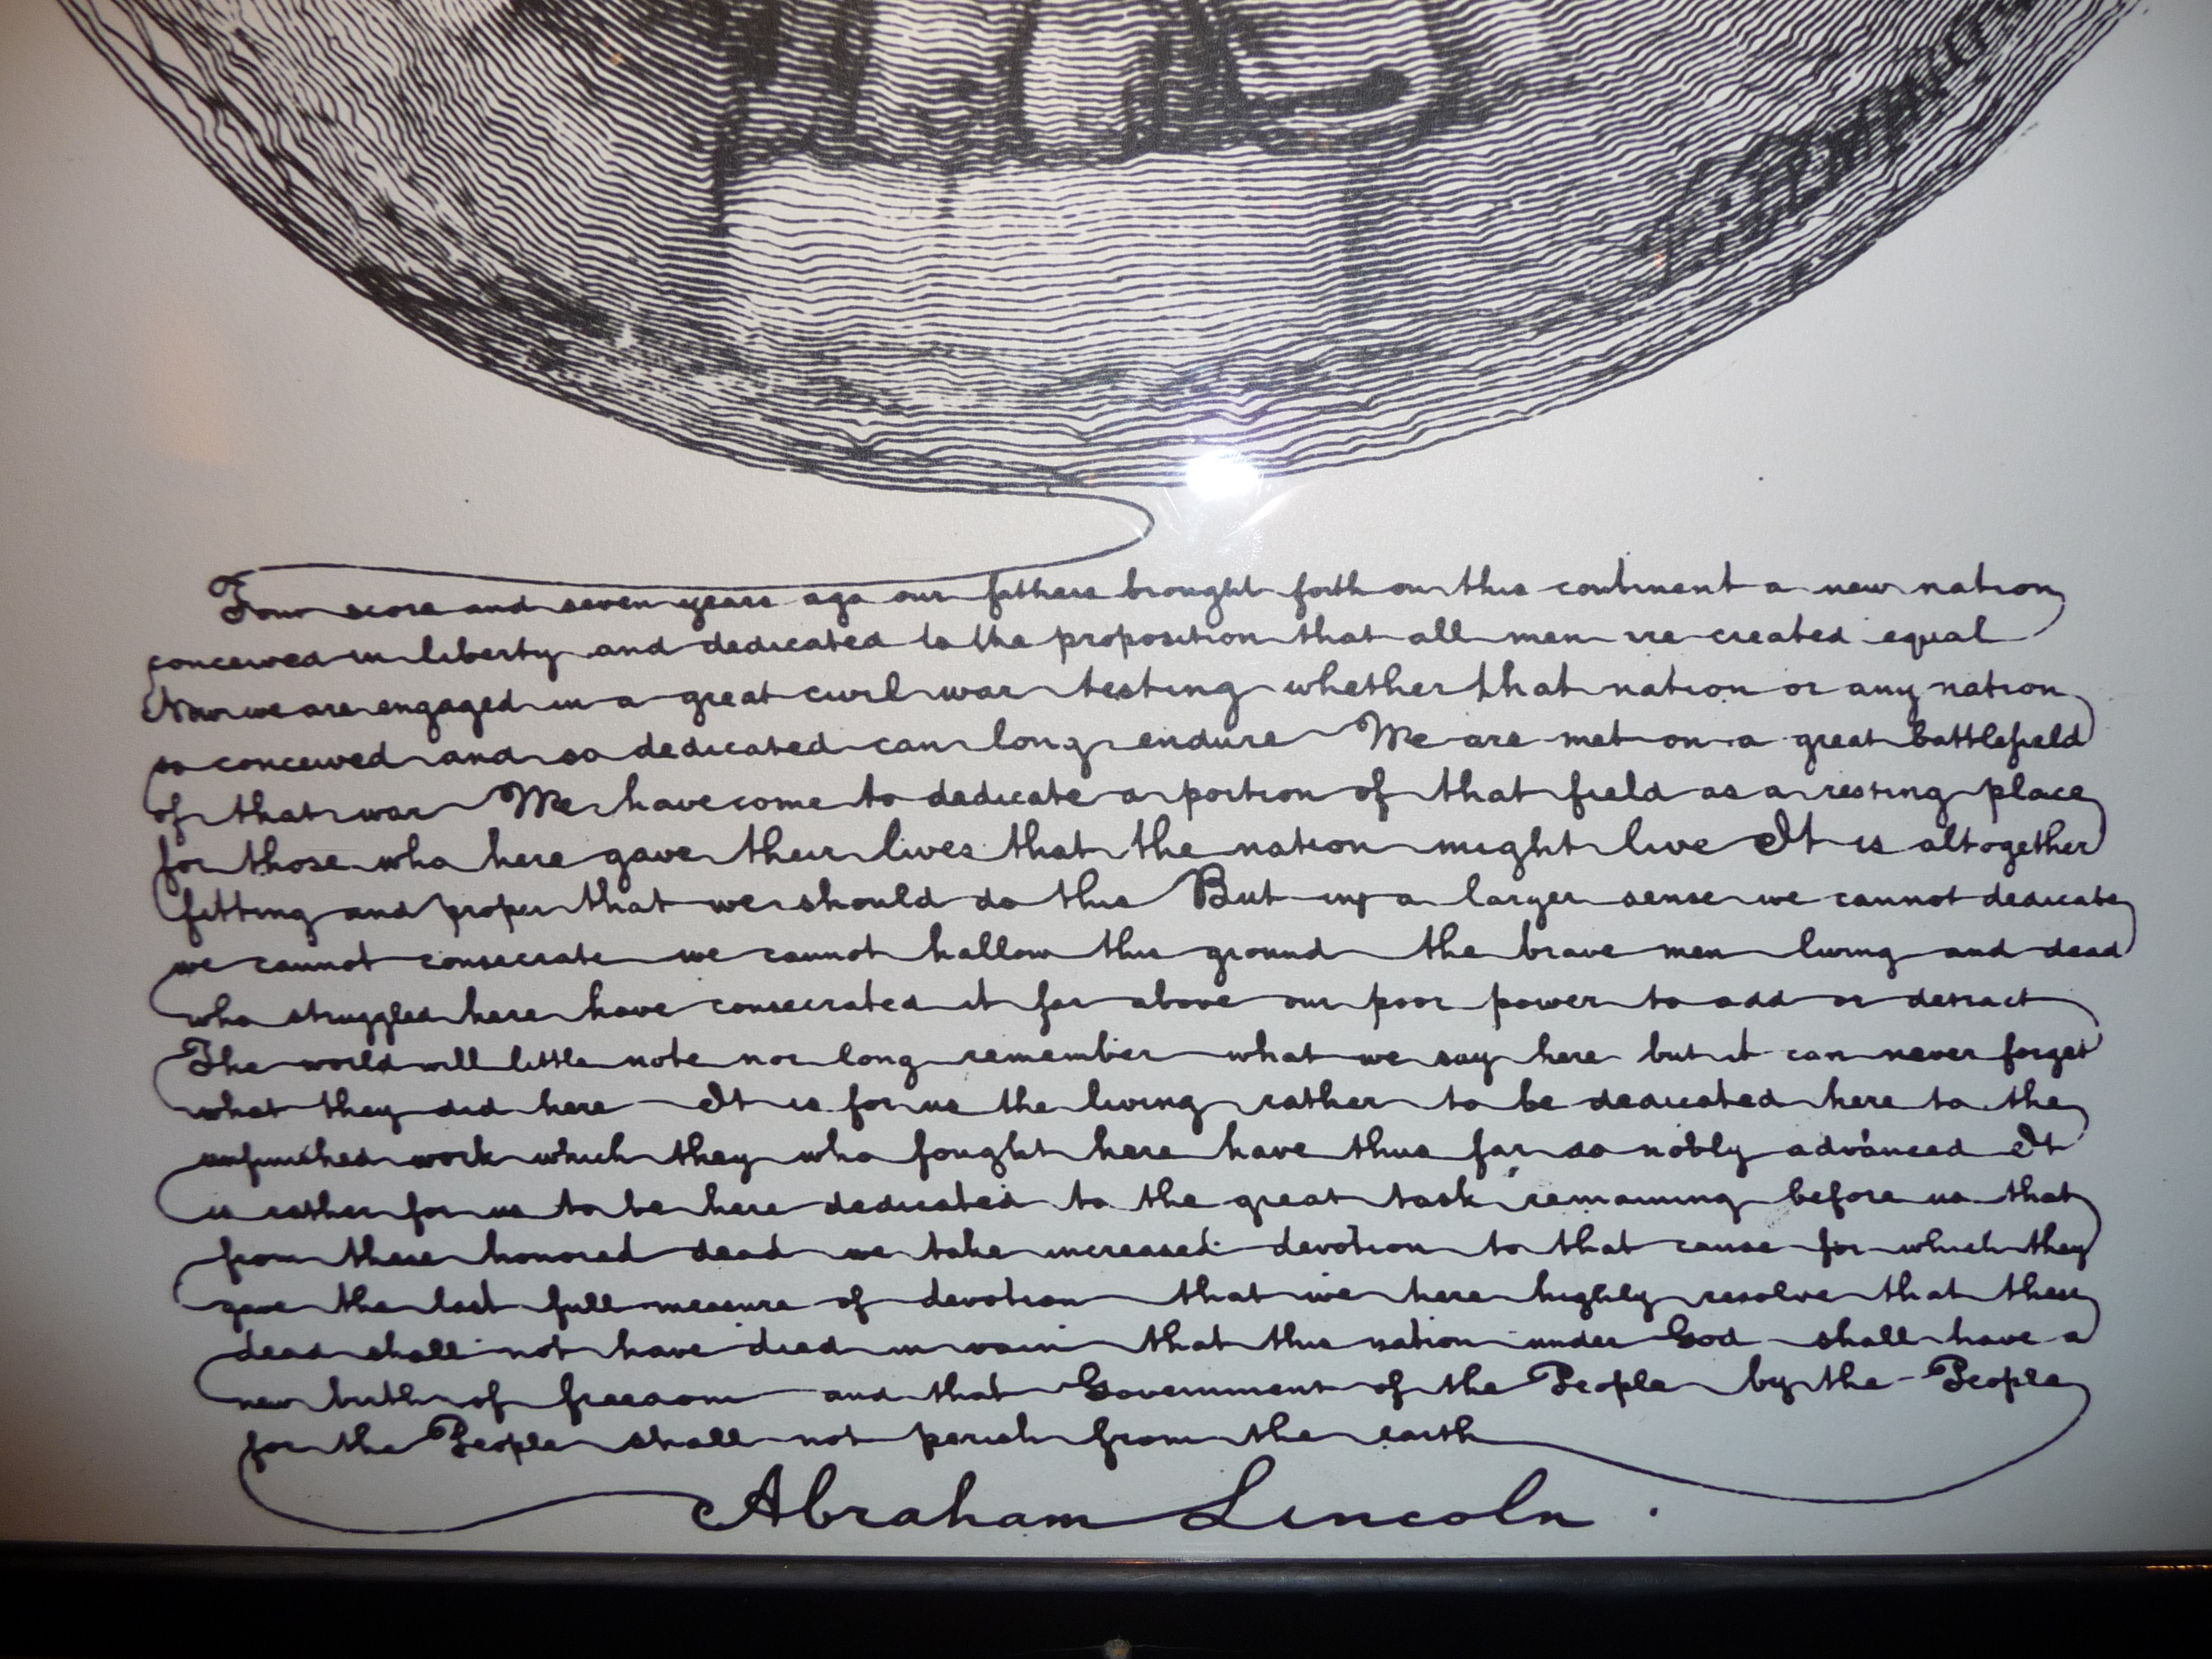 Four score and seven years ago our fathers brought forth on this continent a new nation
conceived in liberty and dedicated to the proposition that all men are created equal
Now we are engaged in a great civil war testing whether that nation or any nation
so conceived and so dedicated can long endure We are met on a great battlefield
of that war We have come to dedicate a portion of that field as a resting place
for those who here gave their lives that the nation might live It is altogether
fitting and proper that we should do this But in a larger sense we cannot dedicate
we cannot consecrate we cannot hallow this ground the brave men living and dead
who struggled here have consecrated it far above our poor power to add or detract
The world will little note nor long remember what we say here but it can never forget
what they did here It is for us the living rather to be dedicated here to the
unfinished work which they who fought here have thus far so nobly advanced It
is rather for us to be here dedicated to the great task remaining before us that
from these honored dead we take increased devotion to that cause for which they
gave the last full measure of devotion that we here highly resolve that these
dead shall not have died in vain that this nation under God shall have a
new birth of freedom and that Government of the People by the People
for the People shall not perish from the earth
Abraham Lincoln